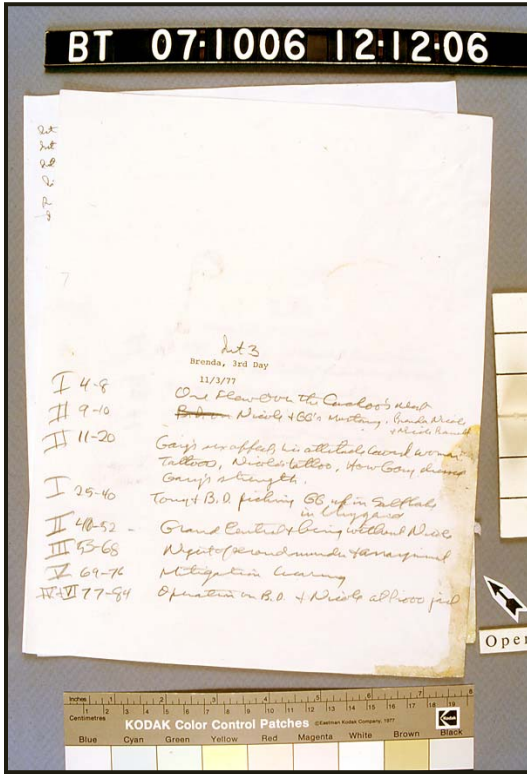 BT 07·1006 12·12·06
Int
Int
Int 3
Brenda, 3rd Day
11/3/77
I 4-8 One Flew Over the Cuckoo's nest
II 9-10 Nicole & GG's Mustang. Brenda Nicole
& Nicole
III 11-20 Gary's sex affects his attitude toward women
Tattoos, Nicole's tattoo, How Gary dresses
Gary's strength.
I 25-40 Tony & B.D. picking GG up in Salt Lake
in
II 40-52 - Grand Central & being without Nicole
III 53-68 Night of second murder & arraignment
V 69-76 Mitigation hearing
IV + VI 77-84 Operation on B.D. & Nicole at Provo jail
Oper
Inches 1 2 3 4 5 6 7 8
Centimetres 1 2 3 4 5 6 7 8 9 10 11 12 13 14 15 16 17 18 19
KODAK Color Control Patches ©Eastman Kodak Company, 1977 Kodak
Blue Cyan Green Yellow Red Magenta White Brown Black